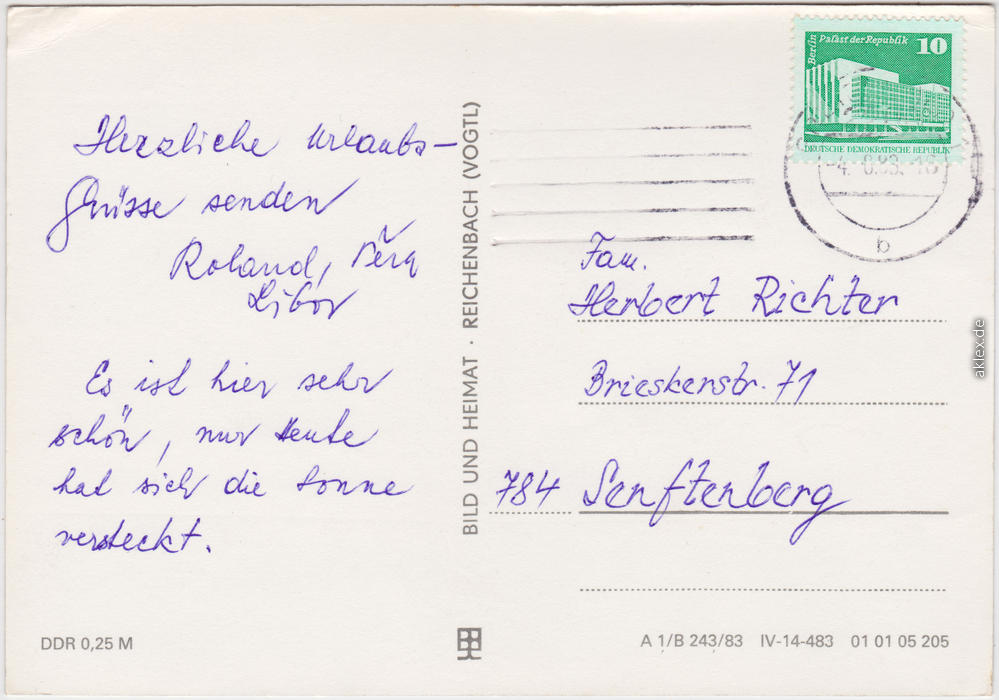 Herzliche Urlaubs-
Grüsse senden
Roland, Věra
Libor
Es ist hier sehr
schön, nur Heute
hat sich die Sonne
versteckt.
DDR 0,25 M
BILD UND HEIMAT · REICHENBACH (VOGTL)
Berlin
Palast der Republik 10
DEUTSCHE DEMOKRATISCHE REPUBLIK
b
Fam.
Herbert Richter
Brieskerstr. 71
784 Senftenberg
A 1/B 243/83 IV-14-483 01 01 05 205
aklex.de